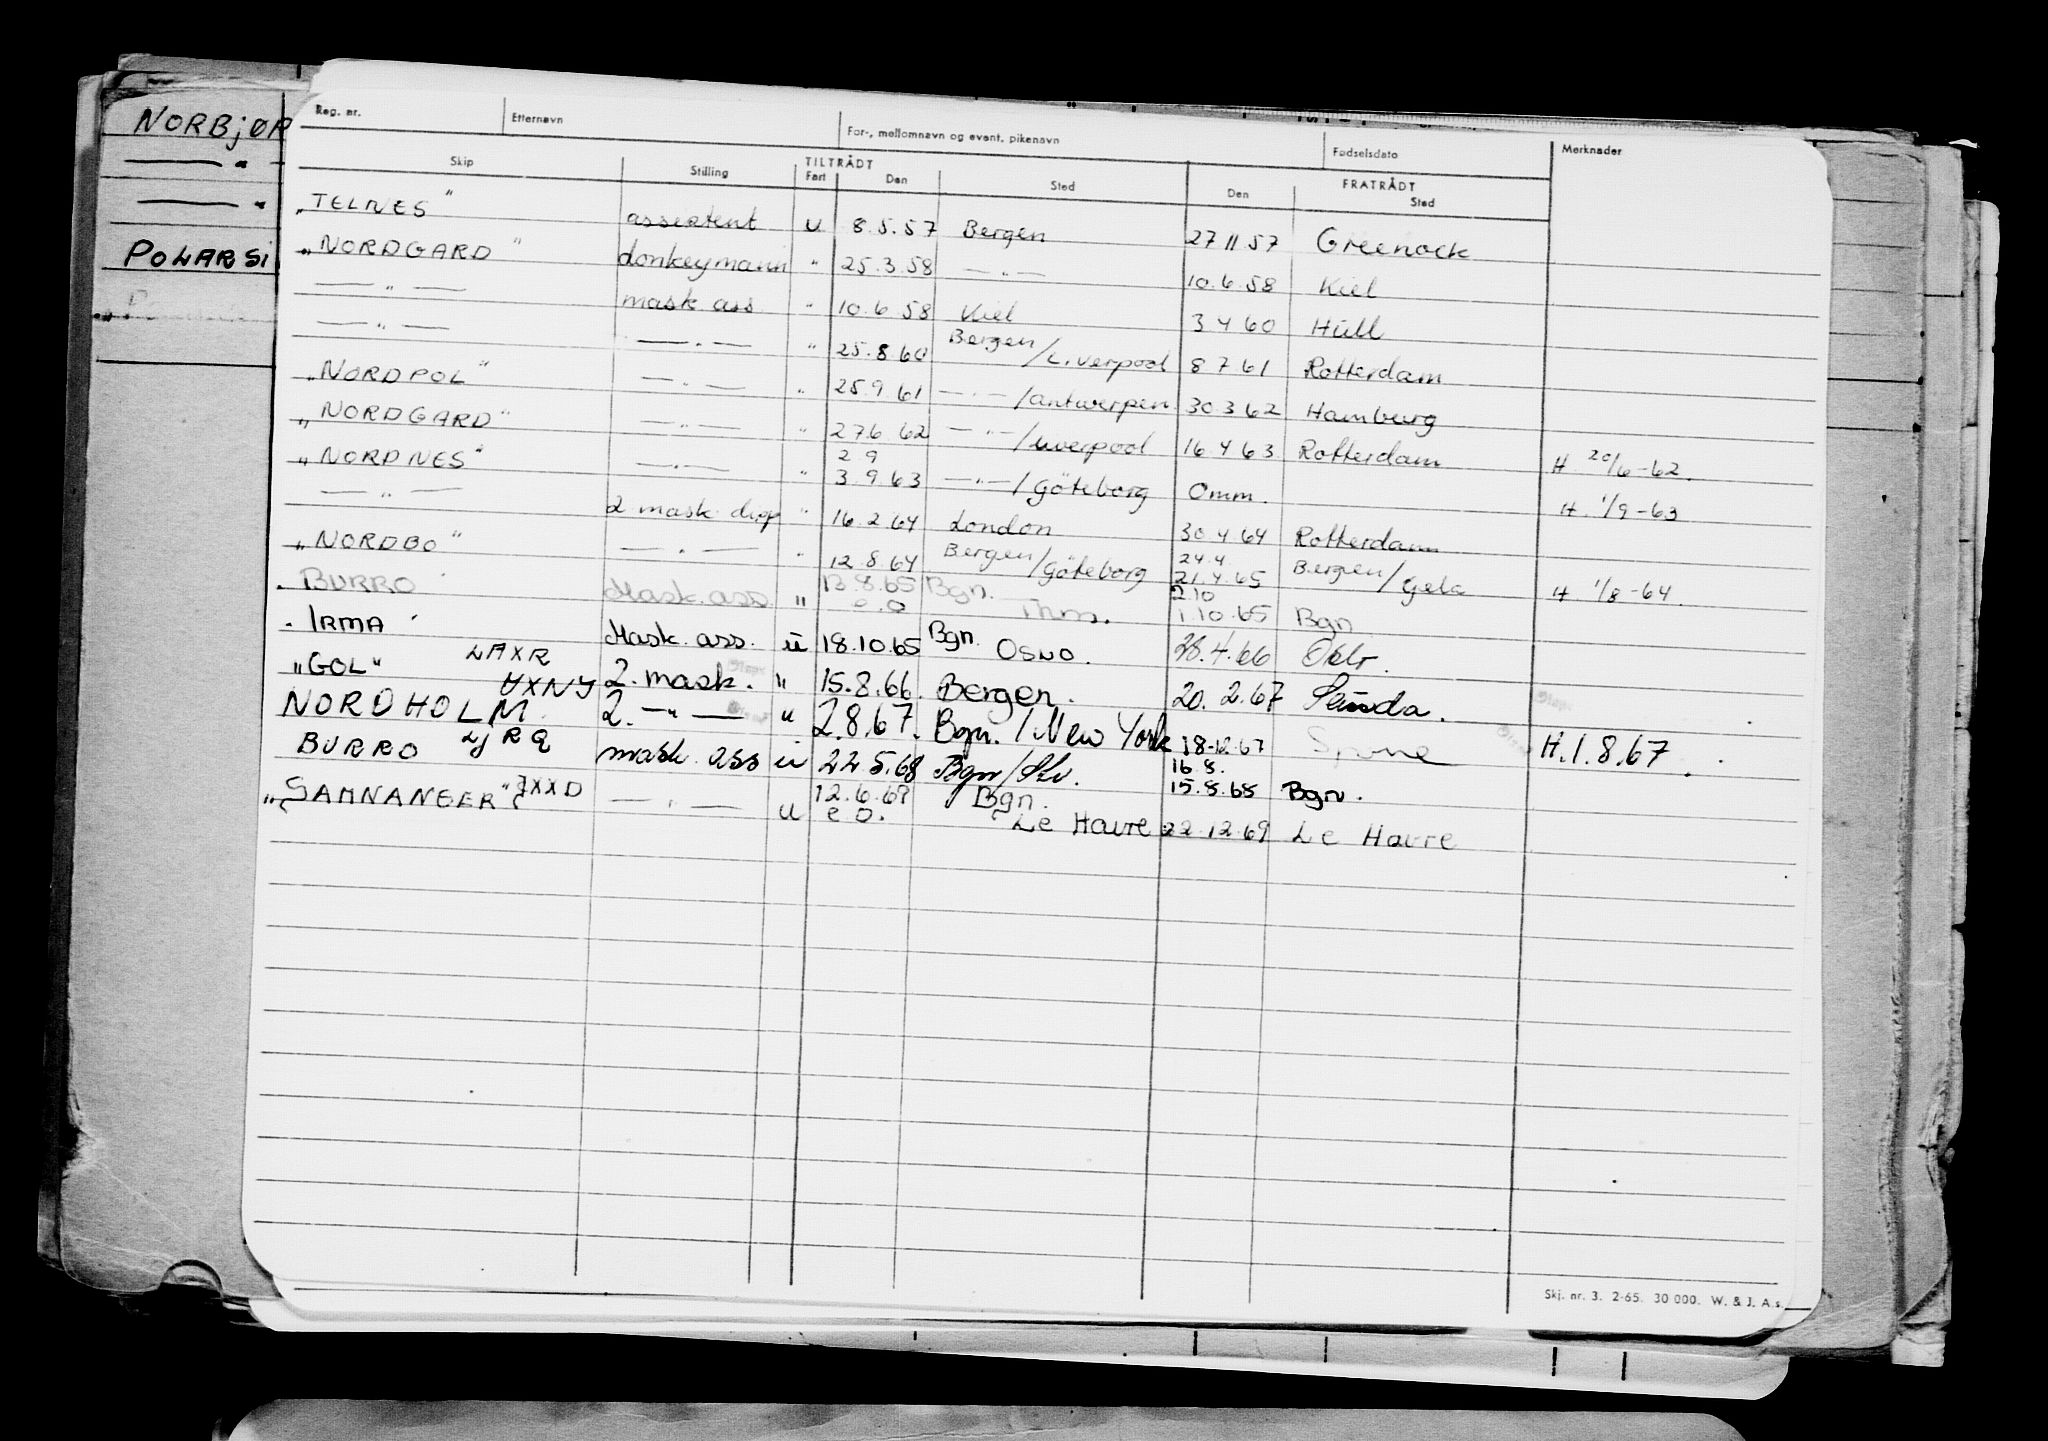 NORBJØR
— " —
— " —
POLARSI
Reg. nr. Etternavn For-, mellomnavn og event. pikenavn Fødselsdato Merknader
Skip Stilling TILTRÅDT FRATRÅDT
Fart Den Sted Den Sted
"TELNES" assistent u 8.5.57 Bergen 27 11 57 Greenock
"NORDGARD" donkeymann " 25.3.58 — " — 10.6.58 Kiel
— " — mask ass " 10.6 58 Kiel 3 4 60 Hull
— " — — " — " 25.8 60 Bergen/Liverpool 8 7 61 Rotterdam
"NORDPOL" — " — " 25.9 61 — " —/antwerpen 30 3 62 Hamburg
"NORDGARD" — " — " 27 6 62 — " —/Liverpool 16 4 63 Rotterdam H 20/6-62.
"NORDNES" — " — " 2 9 3.9 63 — " —/Göteborg Omm. H. 1/9-63
— " — 2 mask disp " 16.2 64 London 30 4 64 Rotterdam
"NORDBO" — " — " 12.8.64 Bergen/Göteborg 24.4. 21.4.65 Bergen/Gela H 1/8-64.
BURRO Mask. ass. " 13.8.65 Bgn. 2.10 1.10.65 Bgn
IRMA Mask. ass. u 18.10.65 Bgn. OSLO. 28.4.66 Oslo.
"GOL" LAXR 2. mask. " 15.8.66. Bergen. 20. 2.67 Sauda.
NORDHOLM LXNY 2. — " — " 2.8.67. Bgn. / New York 18-12.67 H.1.8.67.
BURRO LJRQ mask. ass u 22 5.68 Bgn/Stv. 16.8. 15.8.68 Bgn.
"SAMNANGER" JXXD — " — u 12.6.69 e o. Bgn. Le Havre 22.12.69 Le Havre
Skj. nr. 3. 2-65. 30 000. W. & J. A.s.